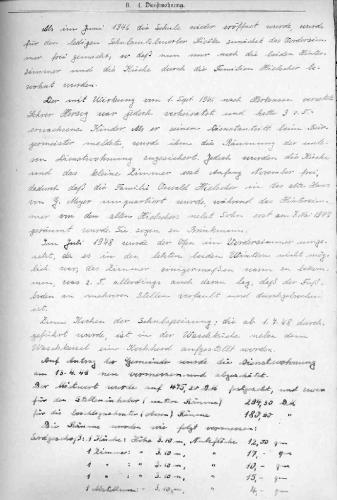 B. 4. Dienstwohnung.
Als im Juni 1946 die Schule wieder eröffnet wurde, wurde
für den ledigen Schulamtsbewerber zunächst das Vorderzim-
mer frei gemacht, so daß nun nur noch die beiden Hinter-
zimmer und die Küche durch die Familie Hielscher be-
wohnt wurden.
Der mit Wirkung vom 1. Sept. nach versetzte
Lehrer Herzog war jedoch verheiratet und hatte 3
erwachsene Kinder. Als er seinen Dienstantritt beim Bür-
germeister meldete, wurde ihm die Räumung der
Dienstwohnung zugesichert. Jedoch wurden die Küche
und das kleine Zimmer erst Anfang November frei,
dadurch daß die Familie Oswald Hielscher in das alte Haus
von G. Meyer umquartiert wurde, während das Hinterzim-
mer von den alten Hielschers nebst Sohn erst am 1948
geräumt wurde. Sie zogen zu
Im Juli 1948 wurde der Ofen im Vorderzimmer umge-
setzt, da es in den letzten beiden Wintern nicht mög-
lich war, das Zimmer einigermaßen warm zu bekom-
men, was z. T. allerdings auch daran lag, daß der Fuß-
boden an mehreren Stellen verfault und durchgebrochen
ist.
Zum Kochen der Schulspeisung, die ab 1.7.48 durch-
geführt wurde, ist in der Waschküche neben dem
Waschkessel ein Kochherd aufgestellt worden.
Auf Antrag der Gemeinde wurde die Dienstwohnung
am 13.4.48 neu vermessen und abgeschätzt.
Der Mietwert wurde auf 475,50 DM festgesetzt, und zwar
für den Stelleninhaber (untere Räume) 294,50 DM
für die (obere) Räume "
Die Räume wurden wie folgt vermessen:
Erdgeschoß: 1 Küche: Höhe 3.10 m, Nutzfläche 12,50 qm
1 Zimmer: " 3.10 m, " 17,- qm
1 " : " 3.10 m, " 10,- qm
1 " : " 3.10 m, " 15,- qm
1 : " 3.10 m, " 4,- qm